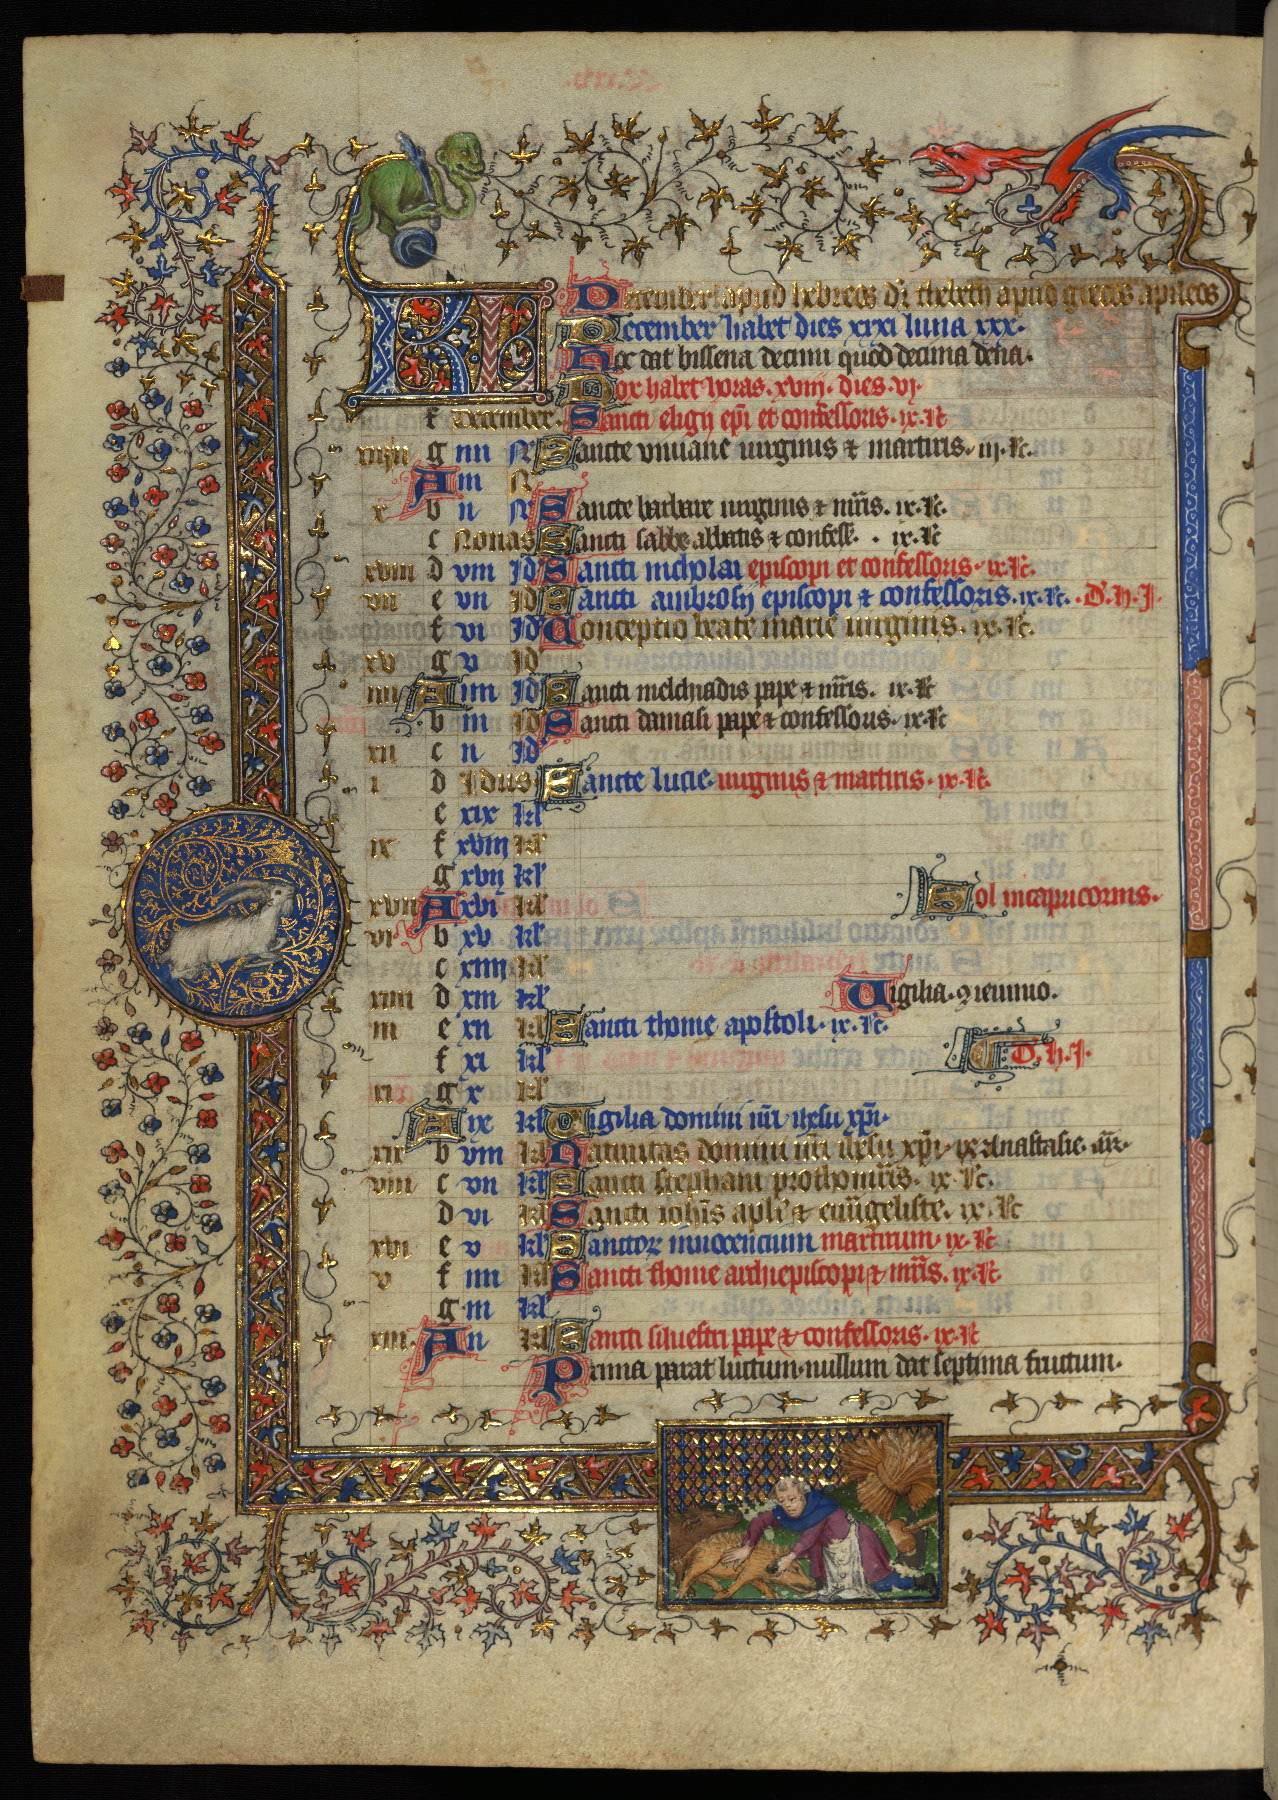 KL December apud hebreos dr̄ theleth apud grecos apileos
December habet dies xxxi luna xxx.
Hec dat bissena decim quod decima dena.
Nox habet horas. xviij. dies. vj.
f December. Sancti eligij ep̄i et confessoris. ix. lc̄
g iiii N̄ Sancte viuiane uirginis & martiris. iij. lc̄.
A iii N̄
x b ii N̄ Sancte barbare uirginis & mr̄is. ix. lc̄.
c Nonas Sancti sabbe abbatis & confess̄. . ix. lc̄
xviii d viii Id Sancti nicholai episcopi et confessoris. ix. lc̄.
vii e vii Id Sancti ambrosij episcopi & confessoris. ix. lc̄. .D. h. J.
f vi Id Conceptio beate marie uirginis. ix. lc̄.
xv g v Id
iiii A iiii Id Sancti melchiadis pape & mr̄is. ix. lc̄
b iii Id Sancti damasi pape & confessoris. ix. lc̄
xii c ii Id
i d Idus Sancte lucie. uirginis & martiris. ix. lc̄.
e xix kl̄
ix f xviii kl̄
g xvii kl̄
xvii A xvi kl̄ Sol in capricornis.
vi b xv kl̄
c xiiii kl̄
xiiii d xiii kl̄ Vigilia. ꝯ ieiunio.
iii e xii kl̄ Sancti thome apostoli. ix. lc̄.
f xi kl̄ D. h. J.
xi g x kl̄
A ix kl̄ Vigilia domini nr̄i ih̄esu xp̄i.
xix b viii kl̄ Natiuitas domini nr̄i ih̄esu xp̄i. ix. Anastasie. mr̄.
viii c vii kl̄ Sancti stephani prothomr̄is. ix. lc̄.
d vi kl̄ Sancti ioh̄is apl̄e & euuāgeliste. ix. lc̄
xvi e v kl̄ Sanctoꝝ innocencium martirum. ix. lc̄.
v f iiii kl̄ Sancti thome archiepiscopi & mr̄is. ix. lc̄.
g iii kl̄
xiii. A ii kl̄ Sancti siluestri pape & confessoris. ix. lc̄
Prima parat luctum. nullum dat septima fructum.